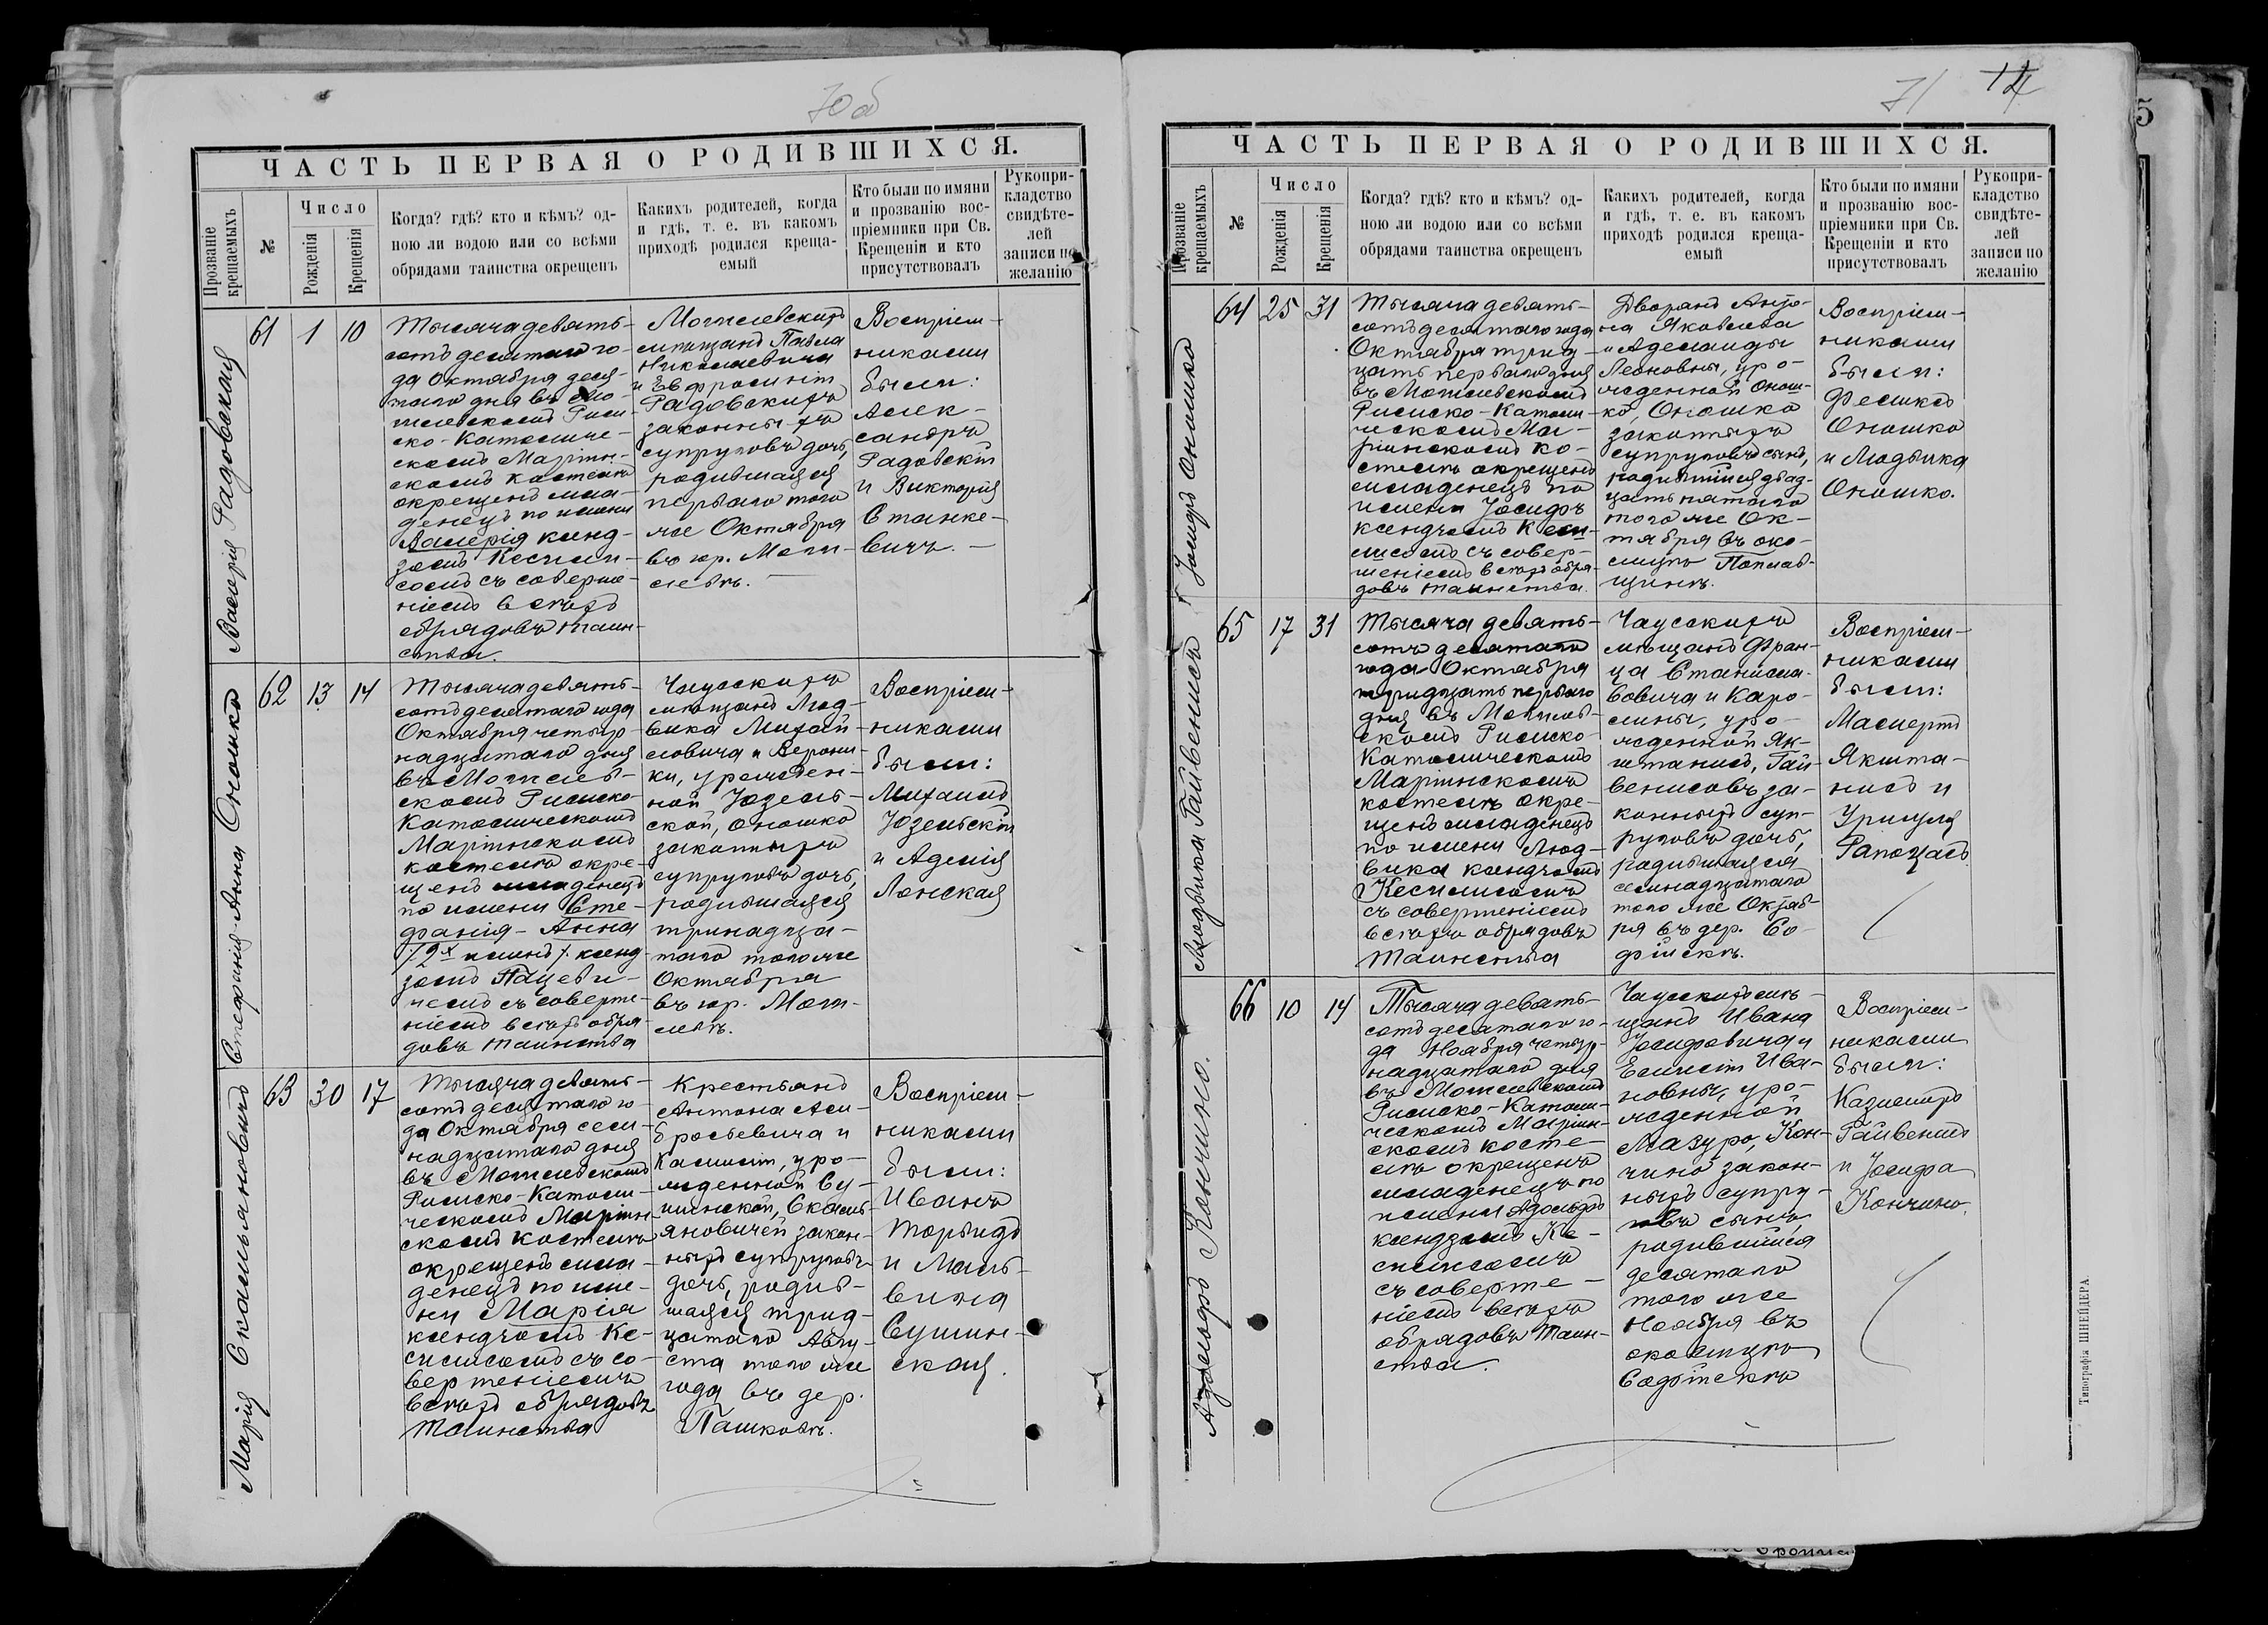 70б
ЧАСТЬ ПЕРВАЯ О РОДИВШИХСЯ.
Прозваніе
крещаемыхъ
№
Число
Рожденія
Крещенія
Когда? гдѣ? кто и кѣмъ? од-
ною ли водою или со всѣми
обрядами таинства окрещенъ
Какихъ родителей, когда
и гдѣ, т. е. въ какомъ
приходѣ родился креща-
емый
Кто были по имяни
и прозванію вос-
пріемники при Св.
Крещеніи и кто
присутствовалъ
Рукопри-
кладство
свидѣте-
лей
записи по
желанію
Валерія Радовская
61
1
10
Тысяча девять-
сотъ десятаго го-
да Октября деся-
таго дня въ Мо-
гилевскомъ Рим-
ско-Католиче-
скомъ Маріин-
скомъ костелѣ
окрещенъ мла-
денецъ по имени
Валерія ксенд-
зомъ Кесми-
сомъ съ соверше-
ніемъ всѣхъ
обрядовъ таин-
ства.
Могилевскихъ
мѣщанъ Павла
Николаевича
и Евфросиніи
Радовскихъ
законныхъ
супруговъ дочь,
родившаяся
перваго того
же Октября
въ гор. Моги-
левѣ.
Воспріем-
никами
были:
Алек-
сандръ
Радовскій
и Викторія
Станке-
вичъ.
Стефанія-Анна Оношко
62
13
14
Тысяча девять-
сотъ десятаго года
Октября четыр-
надцатаго дня
въ Могилев-
скомъ Римско-
Католическомъ
Маріинскомъ
костелѣ окре-
щенъ младенецъ
по имени Сте-
фанія-Анна
/2х именъ/ ксенд-
зомъ Пацеви-
чемъ съ соверше-
ніемъ всѣхъ обря-
довъ таинства
Чаусскихъ
мѣщанъ Люд-
вика Михай-
ловича и Верони-
ки, урожден-
ной Юзель-
ской, Оношко
законныхъ
супруговъ дочь,
родившаяся
тринадца-
таго того же
Октября
въ гор. Моги-
левѣ.
Воспріем-
никами
были:
Михаилъ
Юзельскій
и Аделія
Лонская
Марія Скамьяновичъ
63
30
17
Тысяча девять-
сотъ десятаго го-
да Октября сем-
надцатаго дня
въ Могилевскомъ
Римско-Католи-
ческомъ Маріин-
скомъ костелѣ
окрещенъ мла-
денецъ по име-
ни Марія
ксендзомъ Ке-
смисомъ съ со-
вершеніемъ
всѣхъ обрядовъ
таинства
Крестьянъ
Антона Ам-
бросьевича и
Камиліи, уро-
жденной Су-
шинской, Скамь-
яновичей закон-
ныхъ супруговъ
дочь, родив-
шаяся трид-
цатаго Авгу-
ста того же
года въ дер.
Пашковѣ.
Воспріем-
никами
были:
Иванъ
и Маль-
вина
Сушин-
ская.
71
ЧАСТЬ ПЕРВАЯ О РОДИВШИХСЯ.
Прозваніе
крещаемыхъ
№
Число
Рожденія
Крещенія
Когда? гдѣ? кто и кѣмъ? од-
ною ли водою или со всѣми
обрядами таинства окрещенъ
Какихъ родителей, когда
и гдѣ, т. е. въ какомъ
приходѣ родился креща-
емый
Кто были по имяни
и прозванію вос-
пріемники при Св.
Крещеніи и кто
присутствовалъ
Рукопри-
кладство
свидѣте-
лей
записи по
желанію
Іосифъ Оношко
64
25
31
Тысяча девять-
сотъ десятаго года
Октября трид-
цать перваго дня
въ Могилевскомъ
Римско-Католи-
ческомъ Ма-
ріинскомъ ко-
стелѣ окрещенъ
младенецъ по
имени Іосифъ
ксендзомъ Кесм-
исомъ съ совер-
шеніемъ всѣхъ обря-
довъ таинства.
Дворянъ Анто-
на Яковлева
и Аделаиды
Леоновны, уро-
жденной Онош-
ко, Оношко
законныхъ
супруговъ сынъ,
родившійся двад-
цать пятаго
того же Ок-
тября въ око-
лицѣ Поплав-
щинѣ.
Воспріем-
никами
были:
Феликсъ
Оношко
и Модэика
Оношко.
Людвика Гайвенисъ
65
17
31
Тысяча девять-
сотъ десятаго
года Октября
тридцать перваго
дня въ Могилев-
скомъ Римско-
Католическомъ
Маріинскомъ
костелѣ окре-
щенъ младенецъ
по имени Люд-
вика ксендзомъ
Кесмисомъ
съ совершеніемъ
всѣхъ обрядовъ
таинства
Чаусскихъ
мѣщанъ Фран-
ца Станисла-
вовича и Каро-
лины, уро-
жденной Як-
штанисъ, Гай-
венисовъ за-
конныхъ суп-
руговъ дочь,
родившаяся
семнадцатаго
того же Октяб-
ря въ дер. Со-
фійскѣ.
Воспріем-
никами
были:
Якшта-
нисъ и
Урсуля
Рапоцасъ
Адольфъ Кончино.
66
10
14
Тысяча девять-
сотъ десятаго го-
да Ноября четыр-
надцатаго дня
въ Могилевскомъ
Римско-Католи-
ческомъ Маріин-
скомъ косте-
лѣ окрещенъ
младенецъ по
имени Адольфъ
ксендзомъ Ке-
смисомъ
съ соверше-
ніемъ всѣхъ
обрядовъ таин-
ства.
Чаусскихъ мѣ-
щанъ Ивана
Іосифовича и
Емиліи Ива-
новны, уро-
жденной
Мазуро, Кон-
чино закон-
ныхъ супру-
говъ сынъ,
родившійся
десятаго
того же
Ноября въ
околицѣ
Софійскѣ
Воспріем-
никами
были:
Казимиръ
Гайвенисъ
и Іосифа
Кончино.
Типографія ШНЕЙДЕРА